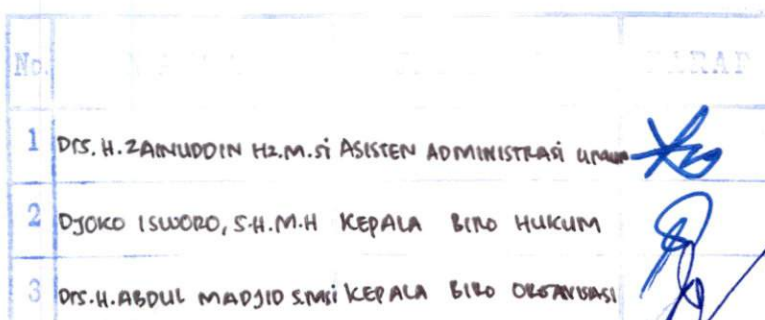 No. PARAF
1 Drs. H. ZAINUDDIN HZ.M.Si ASISTEN ADMINISTRASi UMUM
2 DJOKO ISWORO, S.H.M.H KEPALA BIRO HUKUM
3 Drs.H.ABDUL MADJID S.MSi KEPALA BIRO ORGANISASI